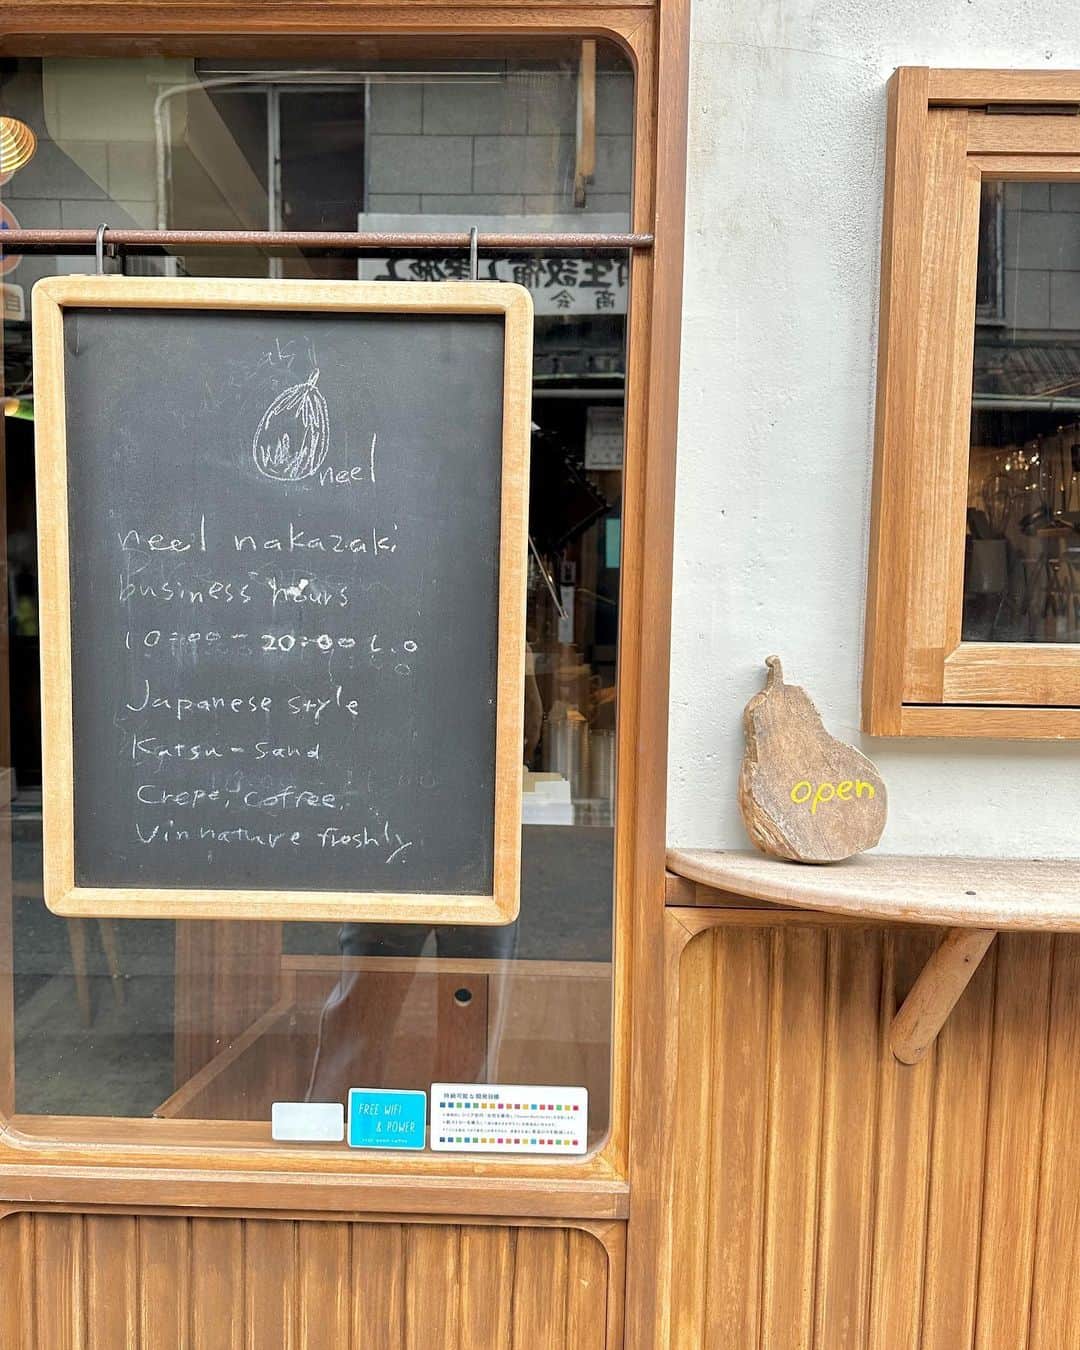 neel
neel nakazaki
business hours
10:00-20:00 L.O
Japanese style
Katsu-Sand
Crepe, Coffee,
Vin nature froshly
open
FREE WIFI
& POWER
持続可能な開発目標